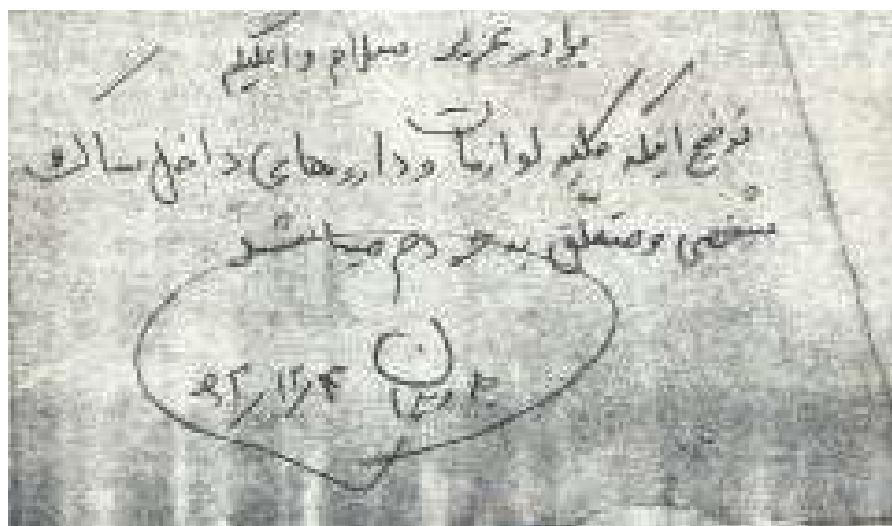 برادر عزیز سلام و علیکم
توضح اینکه کلیه لوازمات و داروهای داخل ساک
شخصی و متعلق به خودم میباشد
۹۲/۱۲/۴